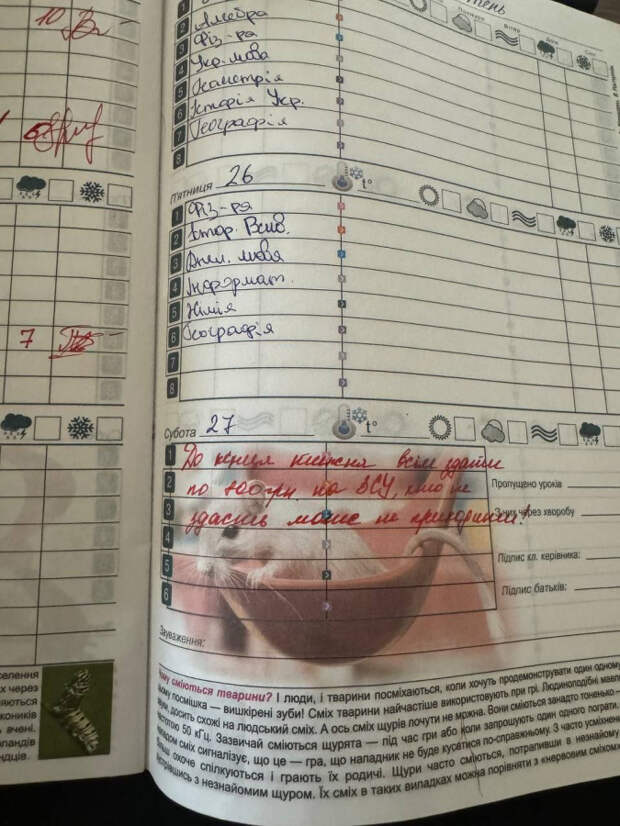 тень
10
1
2 Алгебра
3 Фіз-ра
4 Укр. мова
5 Геометрія
6 Історія Укр.
7 Географія
8
П'ятниця 26 t°
1 Фіз-ра
2 Істор. Всесв.
3 Англ. мова
4 Інформат.
5 Хімія
6 Географія
7
8
7
Субота 27 t°
1 До кінця тижня всім здати
2 по 200 грн. на ЗСУ, хто не
3 здасть може не приходити!
4
5
6
Пропущено уроків
З них через хворобу
Підпис кл. керівника:
Підпис батьків:
Зауваження:
Чому сміються тварини? І люди, і тварини посміхаються, коли хочуть продемонструвати один одному
посмішка — вишкірені зуби! Сміх тварини найчастіше використовують при грі. Людиноподібні мавпи
звуки, досить схожі на людський сміх. А ось сміх щурів почути не можна. Вони сміються занадто тоненько —
частотою 50 кГц. Зазвичай сміються щурята — під час гри або коли запрошують один одного пограти.
сміх сигналізує, що це — гра, що нападник не буде кусатися по-справжньому. З часто усміхнен
охоче спілкуються і грають їх родичі. Щури часто сміються, потрапивши в незнайому
зустрівшись з незнайомим щуром. Їх сміх в таких випадках можна порівняти з «нервовим сміхом»
селення
х через
яються
коників
вчені.
ландів
ндців.